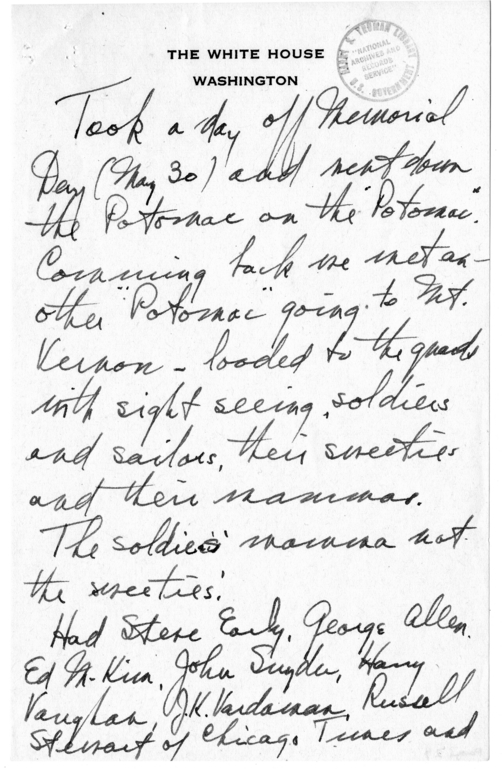 THE WHITE HOUSE
WASHINGTON
HARRY S. TRUMAN LIBRARY
"NATIONAL
ARCHIVES AND
RECORDS
SERVICE"
U.S. GOVERNMENT
Took a day off Memorial
Day (May 30) and went down
the Potomac on the "Potomac".
Comming back we met an-
other "Potomac" going to Mt.
Vernon - loaded to the guards
with sight seeing soldiers
and sailors, their sweeties
and their mammas.
The soldiers' mamma not
the sweeties'.
Had Steve Early, George Allen,
Ed McKim, John Snyder, Harry
Vaughan, J.K. Vardaman, Russell
Stewart of Chicago Times and